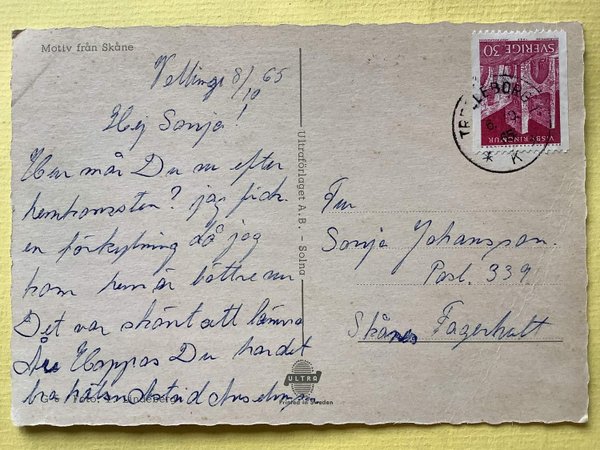 Motiv från Skåne
Vellinge 8/10 65
Hej Sonja!
Hur mår Du nu efter
hemkomsten? jag fick
en förkylning då jag
kom hem är bättre nu
Det var skönt att lämna
Åre Hoppas Du har det
bra hälsn
Ultraförlaget A.B. - Solna
SVERIGE 30
VISBY RINGMUR
TRELLEBORG
K
Fru
Sonja Johansson.
Postl. 339
Skånes Fagerhult
ULTRA
Printed in Sweden